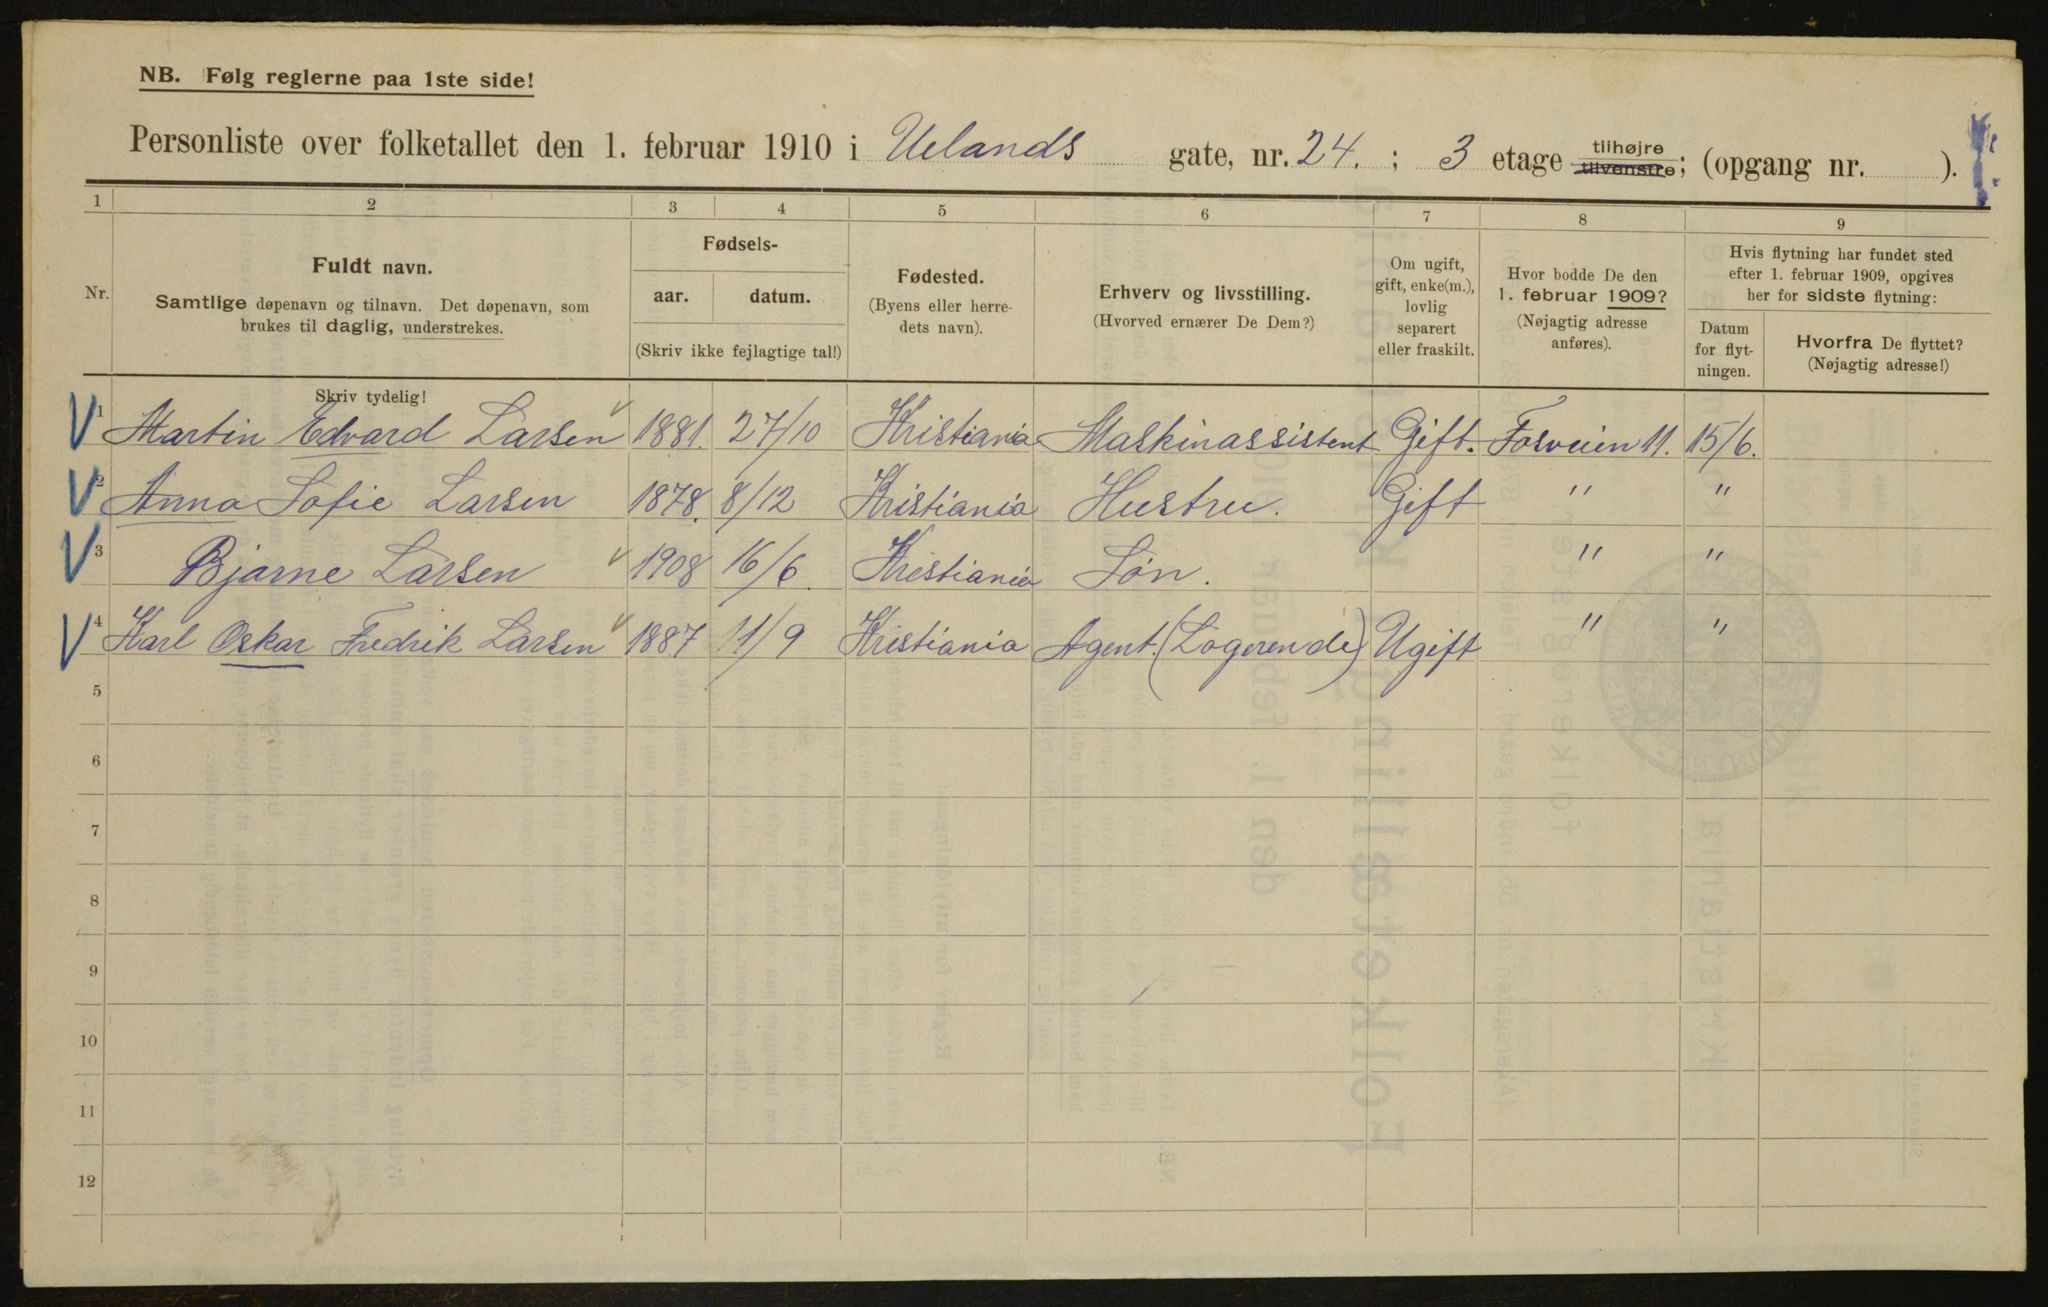 NB. Følg reglerne paa 1ste side!
Personliste over folketallet den 1. februar 1910 i Uelands gate, nr. 24. ; 3 etage tilhøjre tilvenstre; (opgang nr. ).
1 2 3 4 5 6 7 8 9
Nr.
Fuldt navn.
Samtlige døpenavn og tilnavn. Det døpenavn, som
brukes til daglig, understrekes.
Skriv tydelig!
Fødsels-
aar. datum.
(Skriv ikke fejlagtige tal!)
Fødested.
(Byens eller herre-
dets navn).
Erhverv og livsstilling.
(Hvorved ernærer De Dem?)
Om ugift,
gift, enke(m.),
lovlig
separert
eller fraskilt.
Hvor bodde De den
1. februar 1909?
(Nøjagtig adresse
anføres).
Hvis flytning har fundet sted
efter 1. februar 1909, opgives
her for sidste flytning:
Datum
for flyt-
ningen.
Hvorfra De flyttet?
(Nøjagtig adresse!)
1 Martin Edvard Larsen 1881. 27/10 Kristiania Maskinassistent Gift. Fosveien 11. 15/6.
2 Anna Sofie Larsen 1878. 8/12 Kristiania Hustru. Gift " "
3 Bjarne Larsen 1908 16/6. Kristiania Søn. " "
4 Karl Oskar Fredrik Larsen 1887 11/9 Kristiania Agent. (Logerende) Ugift " "
5
6
7
8
9
10
11
12